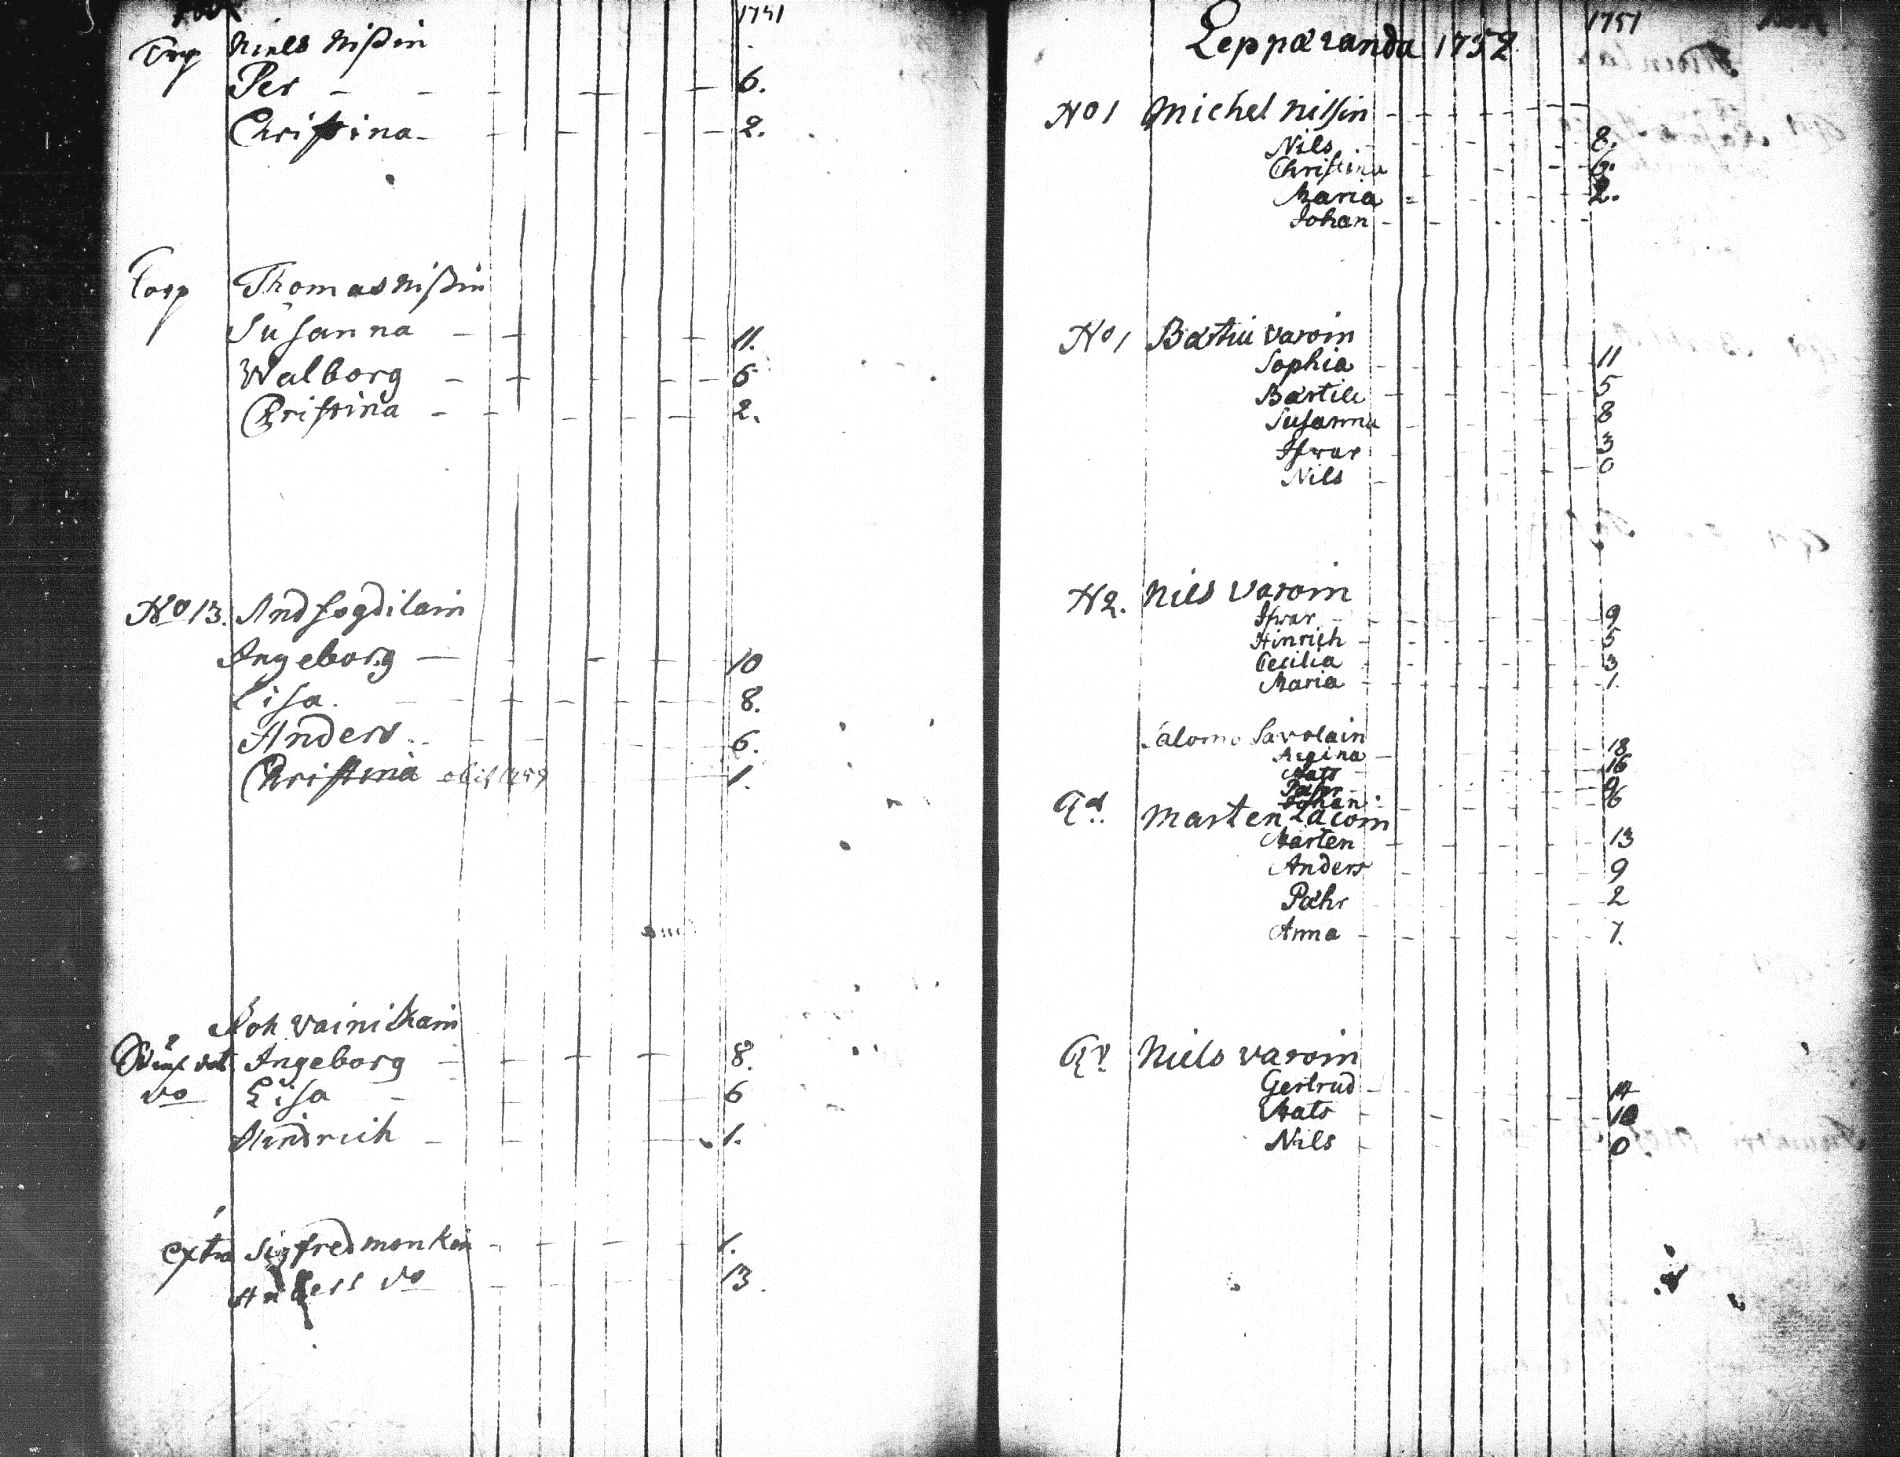 1751
Torp Niels Nissin
Per 6.
Christina 2.
Torp Thomas Nissin
Susanna 11.
Walborg 6
Christina 2.
No 13. And fogdilain
Ingeborg 10
Lisa 8.
Anders 6.
Christina obiit 1.
Joh Vainikain
Ingeborg 8.
do Lisa 6
Hindrich 1.
extra Sigfred monkoin 1.
Anders do 13.
1751
Leppæranda 1752
No 1 Michel Nissin
Nils 8.
Christina 6.
Maria 2.
Johan
No 1 Bærtill Varoin
Sophia 11
Bærtill 5
Susanna 8
Ifwar 3
Nils 0
N 2. Nils Varoin
Ifwar 9
Hinrich 5
Cecilia 3
Maria 1.
Salomo Savolain
Regina 18
Mats 16
Pæhr 9
Johan 6
Marten Lacoin
Marten 13
Anders 9
Pæhr 2
Anna 7.
Niels Varoin
Gertrud 14
Mats 10
Nils 0